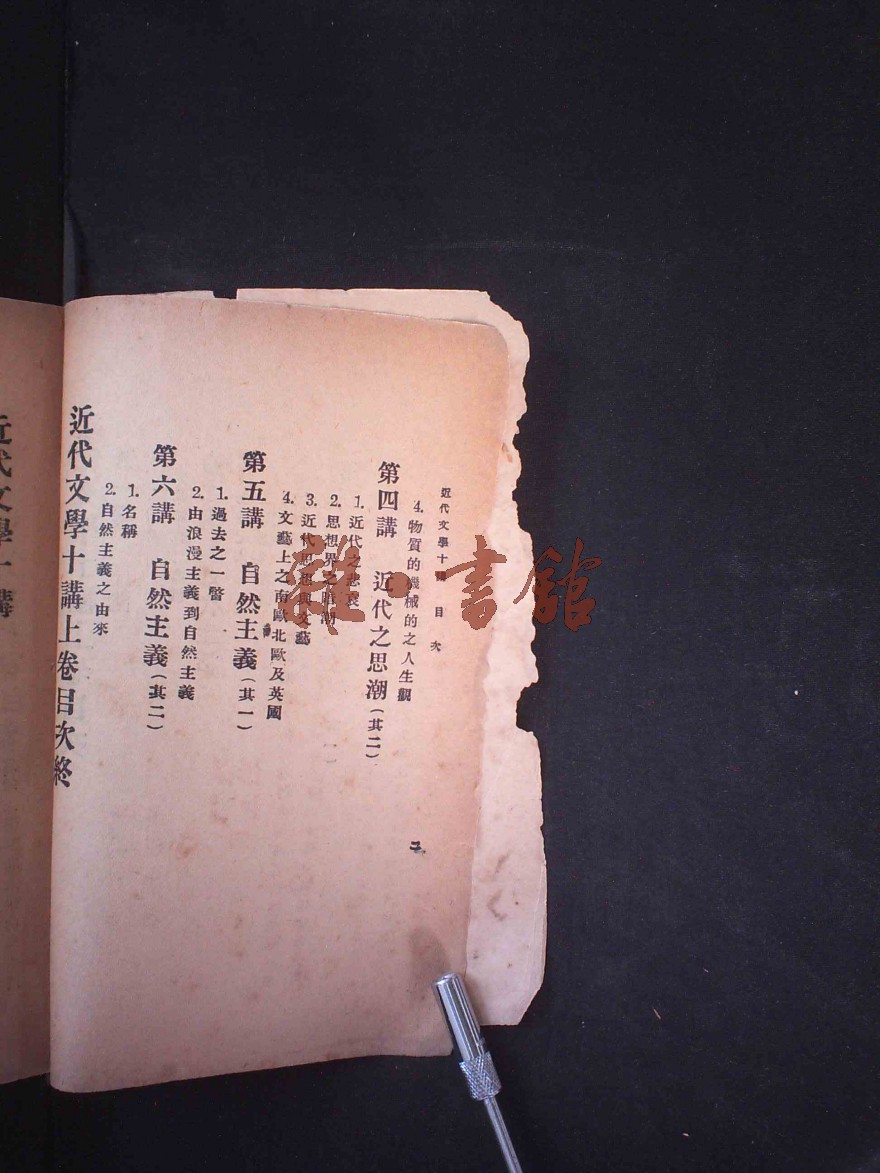 近代文學十講 目次
4. 物質的機械的之人生觀
第四講 近代之思潮(其二)
1. 近代之悲哀
2. 思想界之暗潮
3. 近代思想與文藝
4. 文藝上之南歐北歐及英國
第五講 自然主義(其一)
1. 過去之一瞥
2. 由浪漫主義到自然主義
第六講 自然主義(其二)
1. 名稱
2. 自然主義之由來
近代文學十講上卷目次終
二
近代文學十講
雜·書館